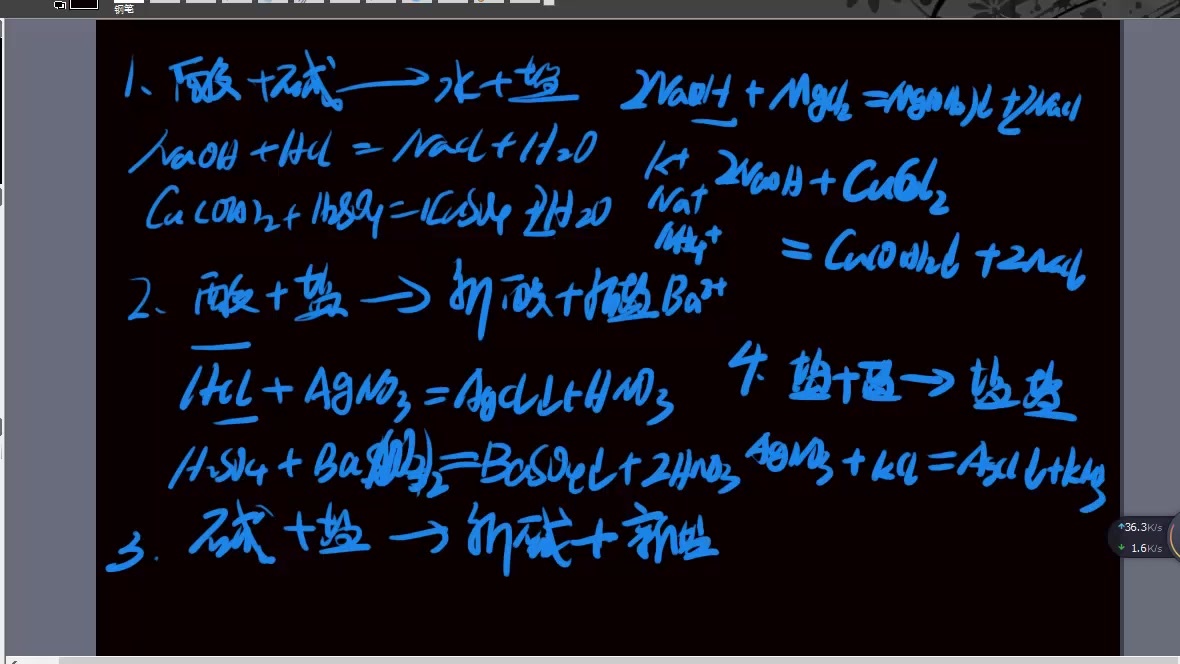 钢笔
1、酸+碱→水+盐
NaOH+HCl=NaCl+H2O
Cu(OH)2+H2SO4=CuSO4+2H2O
2、酸+盐→新酸+新盐
HCl+AgNO3=AgCl↓+HNO3
H2SO4+Ba(NO3)2=BaSO4↓+2HNO3
3.碱+盐→新碱+新盐
2NaOH+MgCl2=Mg(OH)2↓+2NaCl
K+
Na+
NH4+
Ba2+
2NaOH+CuCl2
=Cu(OH)2↓+2NaCl
4.盐+盐→盐 盐
AgNO3+KCl=AgCl↓+KNO3
↑36.3K/s
↓1.6K/s